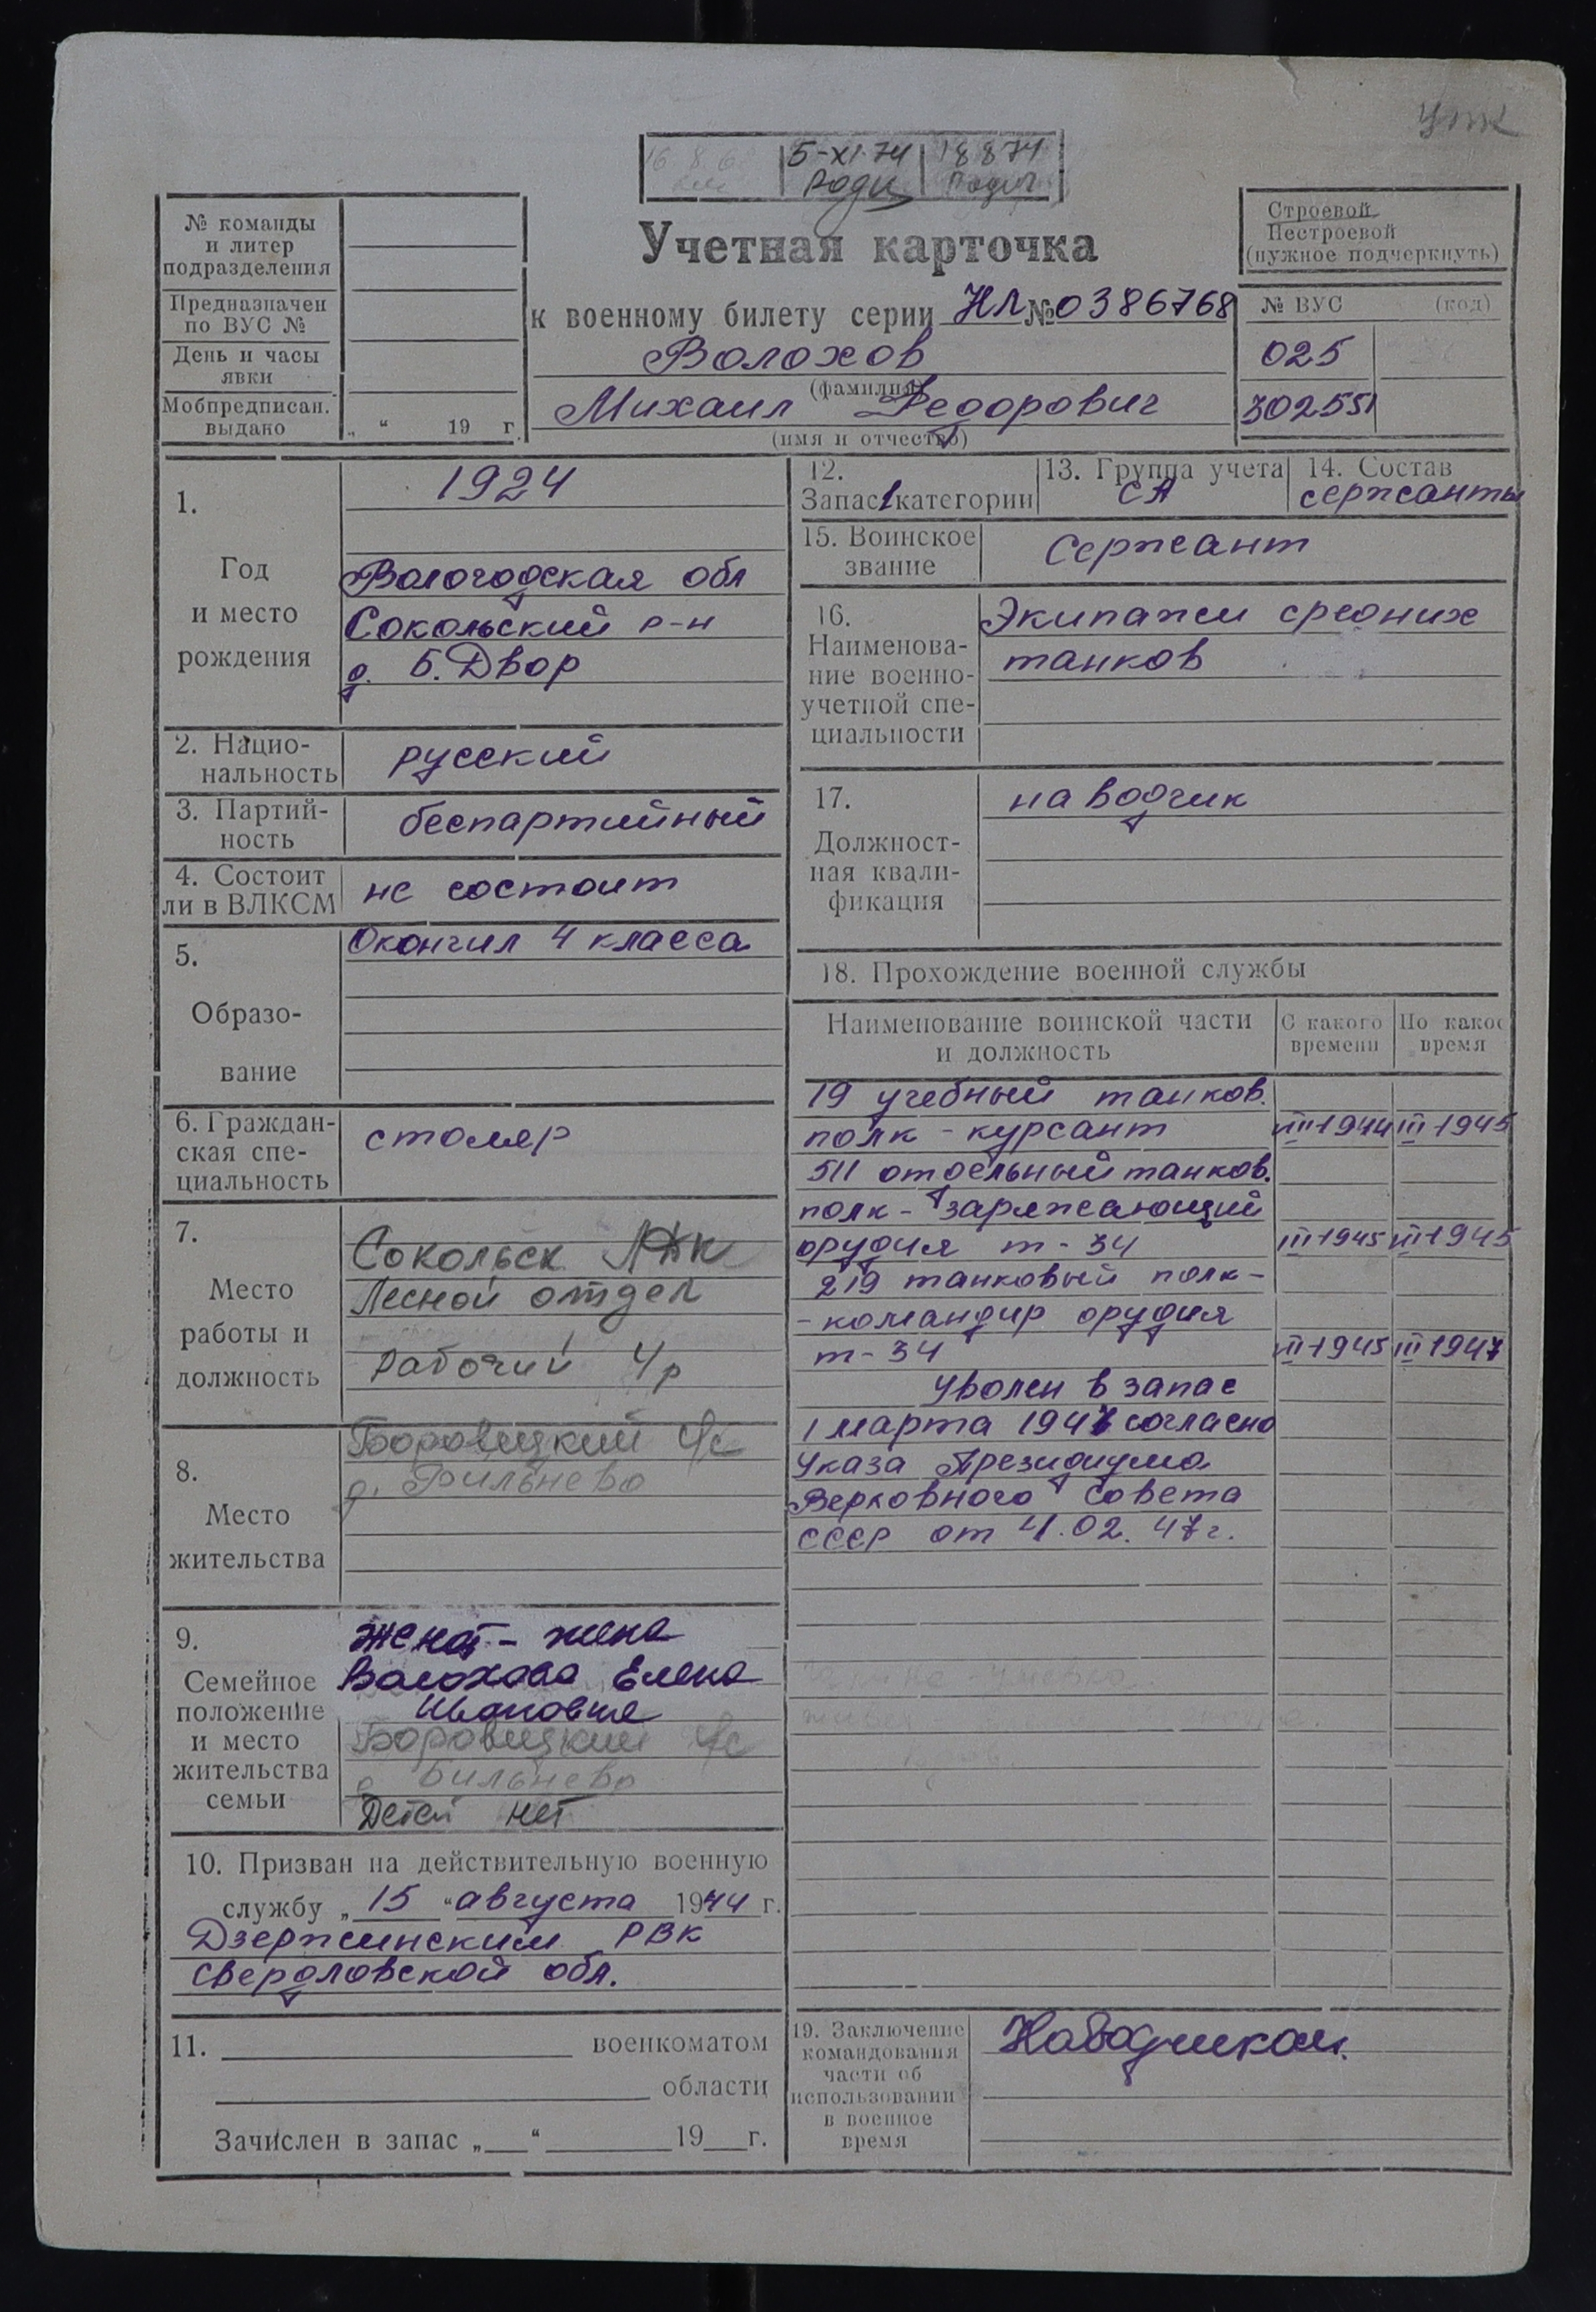 упк
5-XI-74
18 8 74
Учетная карточка
к военному билету серии НЛ № 0386768
Волохов
(фамилия)
Михаил Федорович
(имя и отчество)
№ команды
и литер
подразделения
Предназначен
по ВУС №
День и часы
явки
Мобпредписан.
выдано
„ “ 19 г.
Строевой
Нестроевой
(нужное подчеркнуть)
№ ВУС (код)
025
302551
1.
Год
и место
рождения
1924
Вологодская обл
Сокольский р-н
д. Б. Двор
2. Нацио-
нальность
русский
3. Партий-
ность
беспартийный
4. Состоит
ли в ВЛКСМ
не состоит
5.
Образо-
вание
Окончил 4 класса
6. Граждан-
ская спе-
циальность
столяр
7.
Место
работы и
должность
Сокольск
Лесной отдел
Рабочий 4р
8.
Место
жительства
Боровецкий с/с
д.
9.
Семейное
положение
и место
жительства
семьи
Женат - жена
Волохова Елена
Ивановна
Боровецкий с/с
д
Детей нет
10. Призван на действительную военную
службу „ 15 “ августа 1944 г.
Дзержинским РВК
Свердловской обл.
11. военкоматом
области
Зачислен в запас „ “ 19 г.
12.
Запас 1 категории
13. Группа учета
СА
14. Состав
сержанты
15. Воинское
звание
Сержант
16.
Наименова-
ние военно-
учетной спе-
циальности
Экипажи средних
танков
17.
Должност-
ная квали-
фикация
наводчик
18. Прохождение военной службы
Наименование воинской части
и должность
С какого
времени
По какое
время
19 учебный танков.
полк - курсант VIII-1944 III-1945
511 отдельный танков.
полк - заряжающий
орудия т-34 III-1945 VI-1945
219 танковый полк -
- командир орудия
т-34 VI-1945 III-1947
Уволен в запас
1 марта 1947 согласно
Указа Президиума
Верховного Совета
СССР от 4.02.47г.
19. Заключение
командования
части об
использовании
в военное
время
Наводчиком.